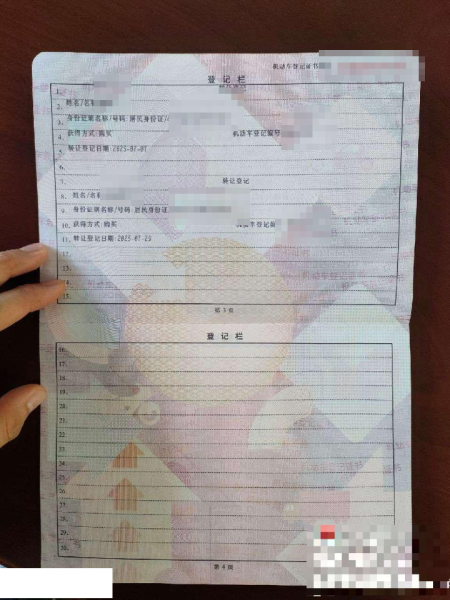 机动车登记证书
登记栏
1.
2. 姓名/名称
3. 身份证明名称/号码:居民身份证/
4. 获得方式:购买 机动车登记编号
5. 转让登记日期:2023-07-07
6.
7. 转让登记
8. 姓名/名称
9. 身份证明名称/号码:居民身份证/
10. 获得方式:购买 机动车登记编
11. 转让登记日期:2023-07-23
12.
13.
14.
15.
第3页
登记栏
16.
17.
18.
19.
20.
21.
22.
23.
24.
25.
26.
27.
28.
29.
30.
第4页